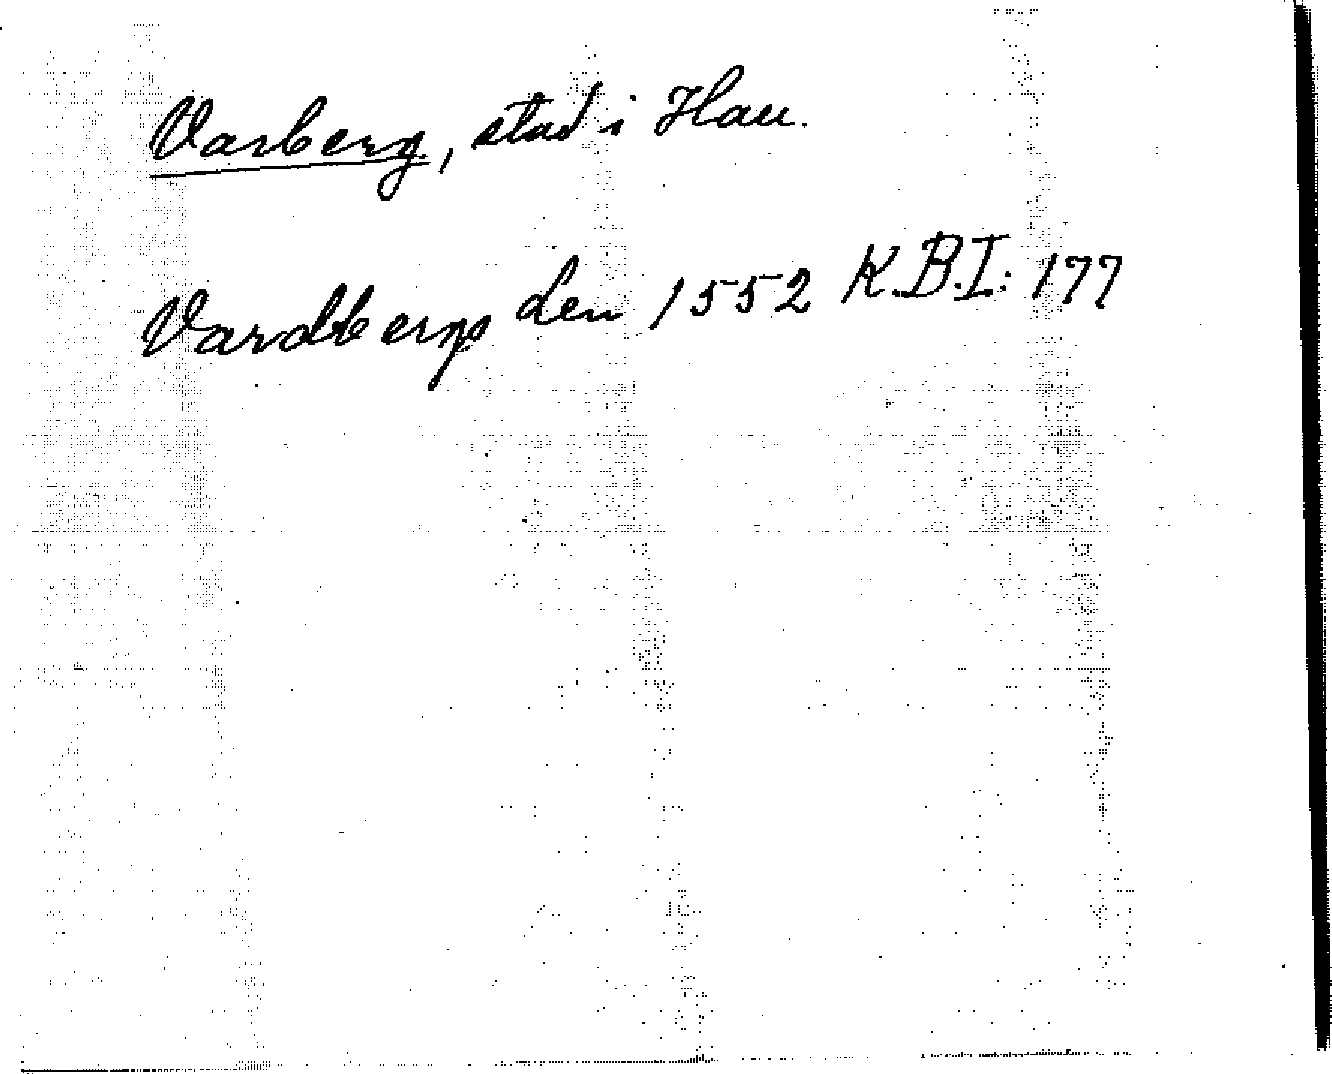 Varberg, stad i Hall.
Vardbergs len 1552 K.B.I: 177